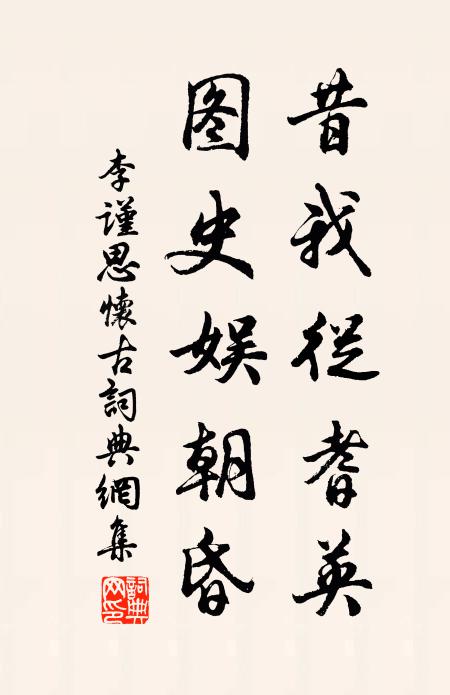 昔我從耆英
图史娱朝昏
李谨思懷古詞典網集
詞典網印